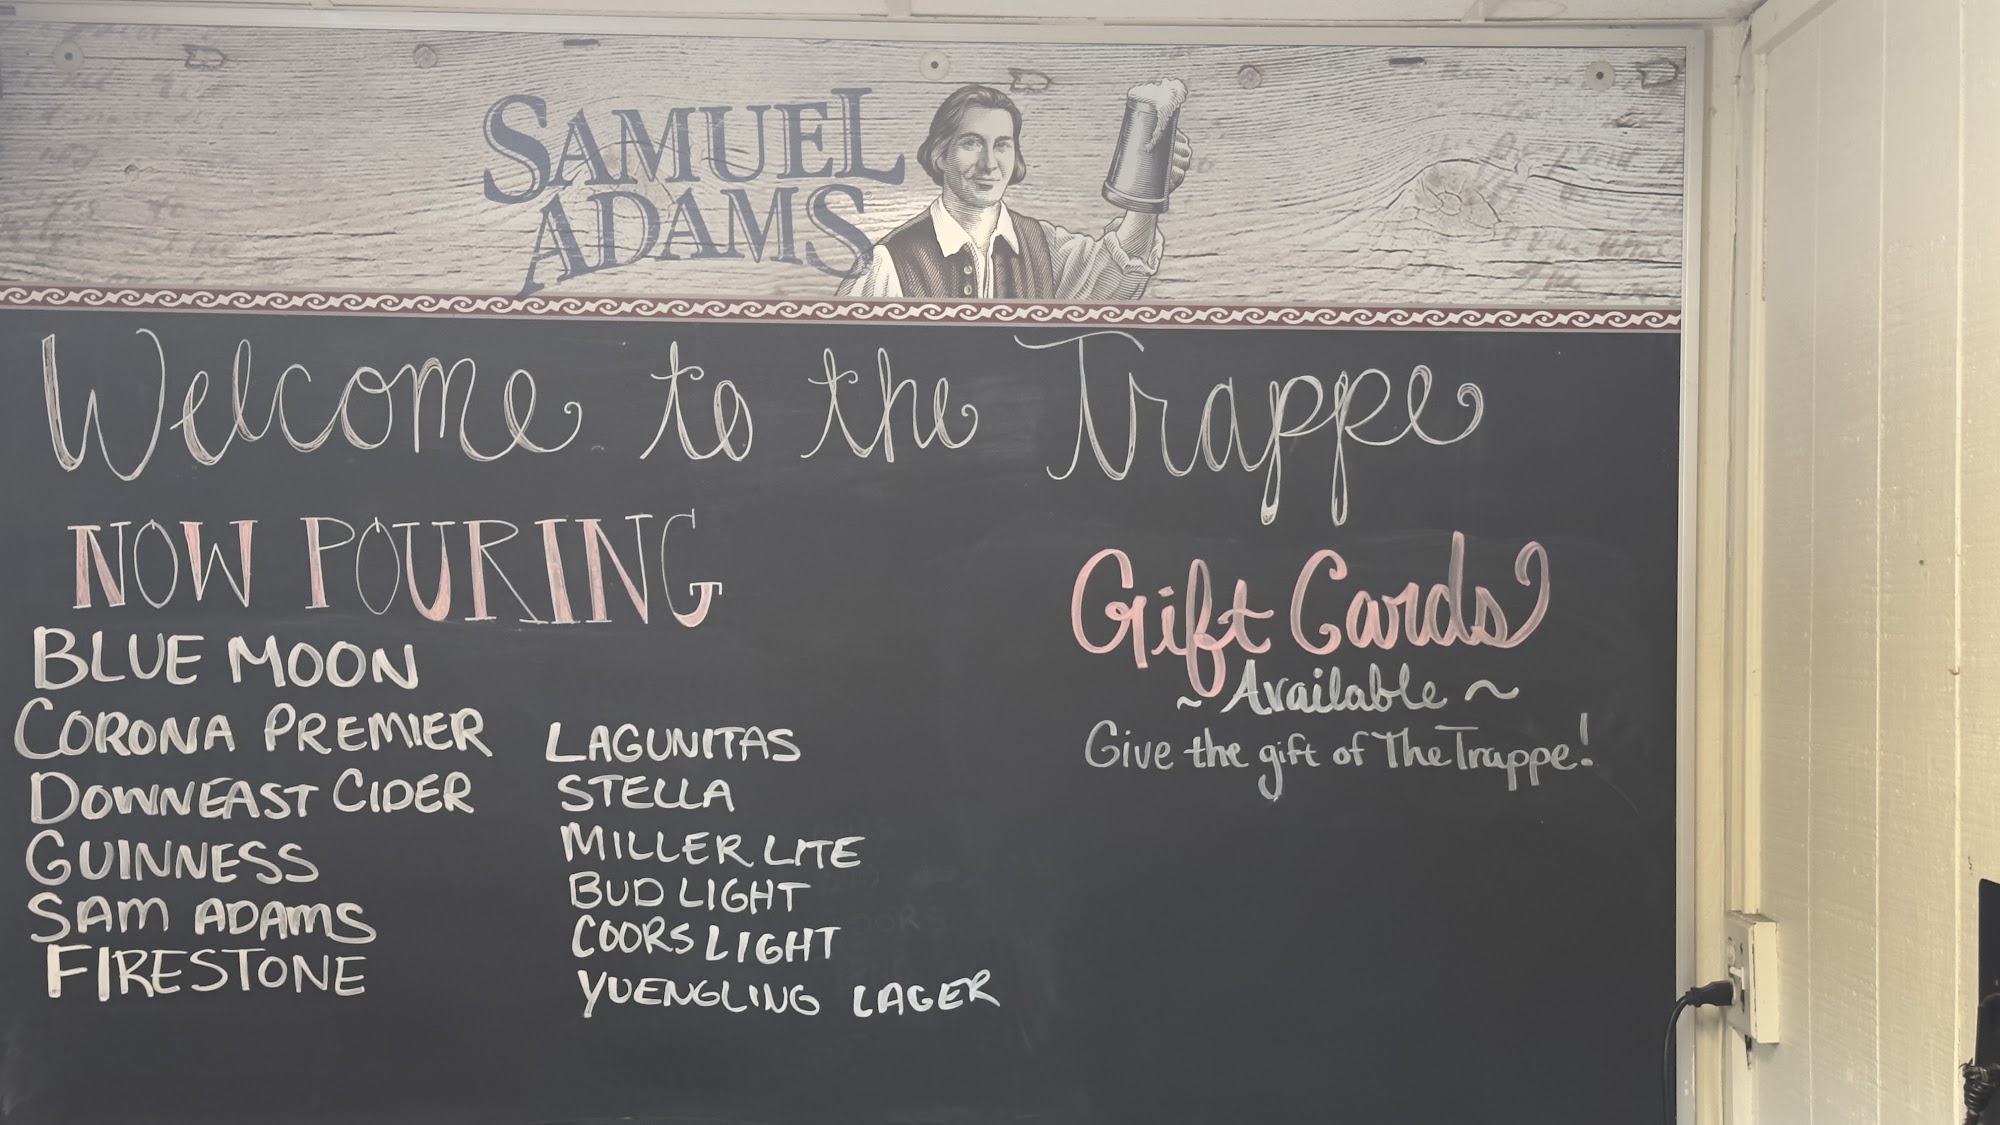 SAMUEL
ADAMS
Welcome to the Trappe
NOW POURING
BLUE MOON
CORONA PREMIER
DOWNEAST CIDER
GUINNESS
SAM ADAMS
FIRESTONE
LAGUNITAS
STELLA
MILLER LITE
BUD LIGHT
COORS LIGHT
YUENGLING LAGER
Gift Cards
~ Available ~
Give the gift of The Trappe!